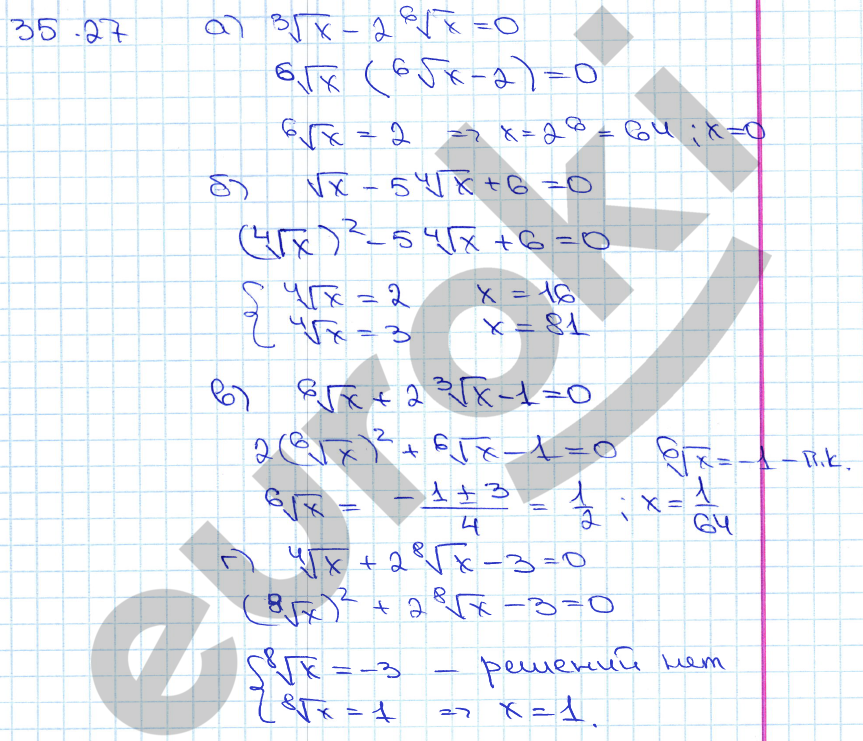 35.27 а) ∛x − 2 ⁶√x = 0
⁶√x (⁶√x − 2) = 0
⁶√x = 2 => x = 2⁶ = 64 ; x = 0
б) √x − 5 ⁴√x + 6 = 0
(⁴√x)² − 5 ⁴√x + 6 = 0
{ ⁴√x = 2 x = 16
⁴√x = 3 x = 81
в) ⁶√x + 2 ∛x − 1 = 0
2(⁶√x)² + ⁶√x − 1 = 0 ⁶√x = −1 − п.к.
⁶√x = (−1 ± 3)/4 = 1/2 ; x = 1/64
г) ⁴√x + 2 ⁸√x − 3 = 0
(⁸√x)² + 2 ⁸√x − 3 = 0
{ ⁸√x = −3 — решений нет
⁸√x = 1 => x = 1.
euroki